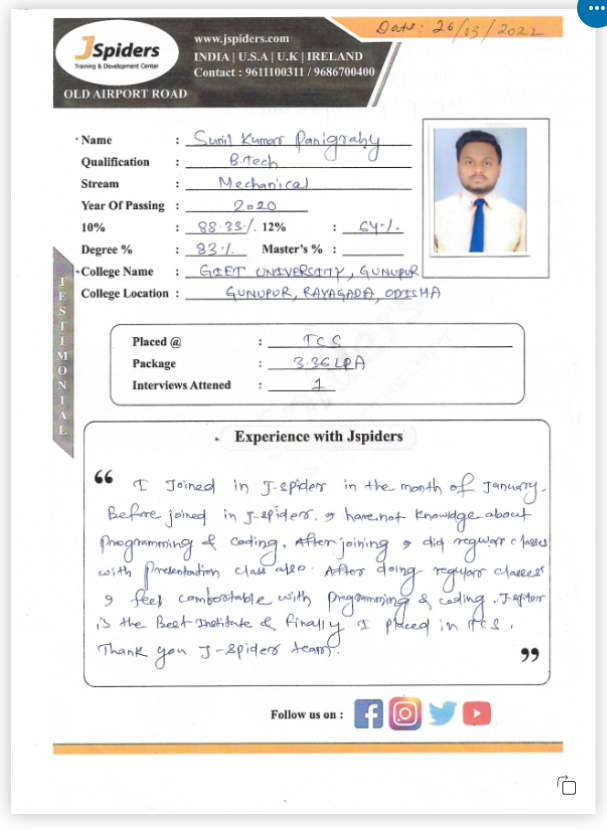 Date: 26/03/2022
JSpiders
Training & Development Center
OLD AIRPORT ROAD
www.jspiders.com
INDIA | U.S.A | U.K | IRELAND
Contact : 9611100311 / 9686700400
Name : Sunil Kumar Panigrahy
Qualification : B.Tech
Stream : Mechanical
Year Of Passing : 2020
10% : 88.33%. 12% : 64%.
Degree % : 83%. Master's % :
College Name : GIET UNIVERSITY, GUNUPUR
College Location : GUNUPUR, RAYAGADA, ODISHA
TESTIMONIAL
Placed @ : TCS
Package : 3.36 LPA
Interviews Attened : 1
Experience with Jspiders
“ I Joined in J-spider in the month of January.
Before joined in J-spider. I have not knowldge about
Programming & Coding. After joining I did regular classes
with Presentation class also. After doing regular classes
I feel comfortable with programming & coding. J-spider
is the Best Institute & finally I placed in TCS.
Thank you J-spider team. ”
Follow us on :